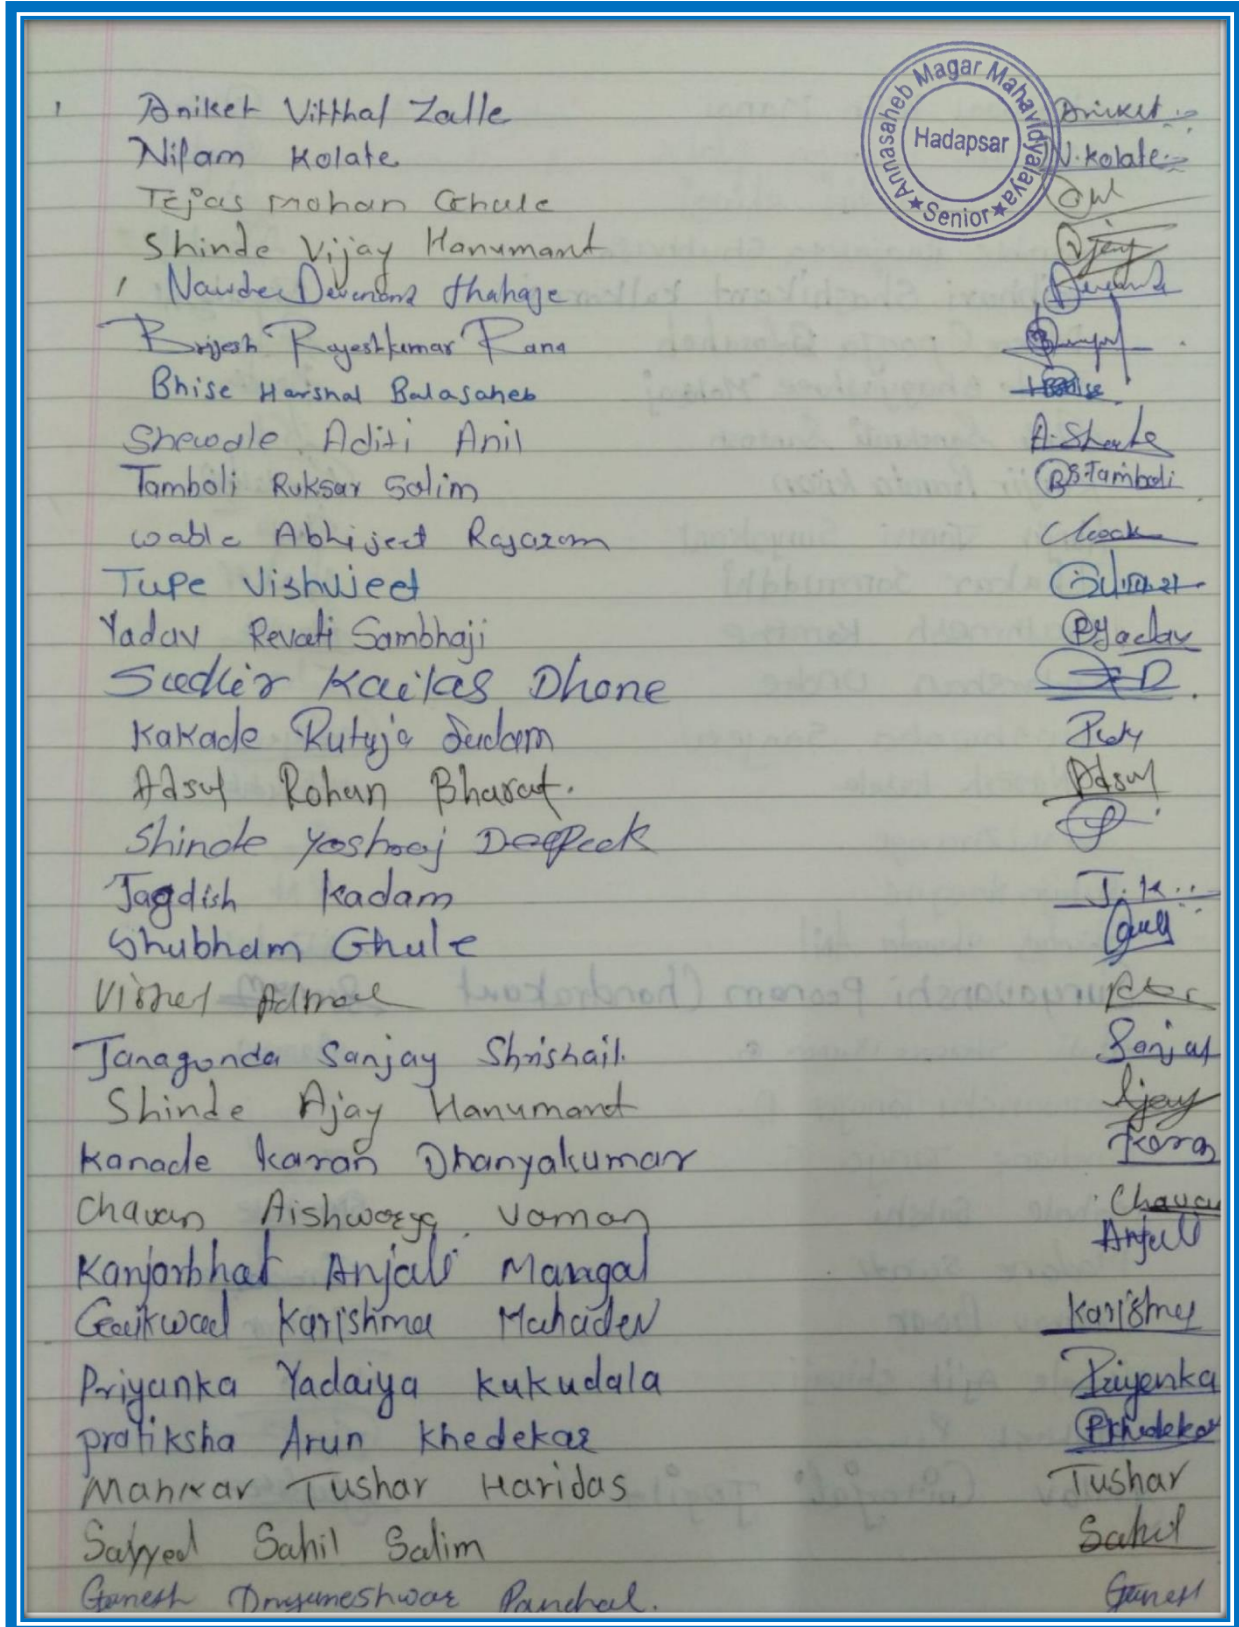 Annasaheb Magar Mahavidyalaya
Hadapsar
★ Senior ★
Aniket Vitthal Zalle Aniket
Nilam Kolate N. Kolate
Tejas Mohan Ghule
Shinde Vijay Hanumant Vijay
Brijesh Rajeshkumar Rana
Bhise Harshal Balasaheb
Shewale Aditi Anil
Tamboli Ruksar Salim R S. Tamboli
Wable Abhijeet Rajaram
Tupe Vishvjeet
Yadav Revati Sambhaji R Yadav
Sudhir Kailas Dhone
Kakade Rutuja Sudam
Adsul Rohan Bharat. Adsul
Shinde Yashraj Deepak
Jagdish Kadam J. K.
Shubham Ghule
Janagonda Sanjay Shrishail. Sanjay
Shinde Ajay Hanumant Ajay
Kanade Karan Dhanyakumar Karan
Chavan Aishwarya Vaman Chavan
Kanjarbhat Anjali Mangal Anjali
Gaikwad Karishma Mahadev Karishma
Priyanka Yadaiya Kukudala Priyenka
Pratiksha Arun Khedekar P Khedekar
Mankar Tushar Haridas Tushar
Sayyed Sahil Salim Sahil
Ganesh Dnyaneshwar Panchal. Ganesh